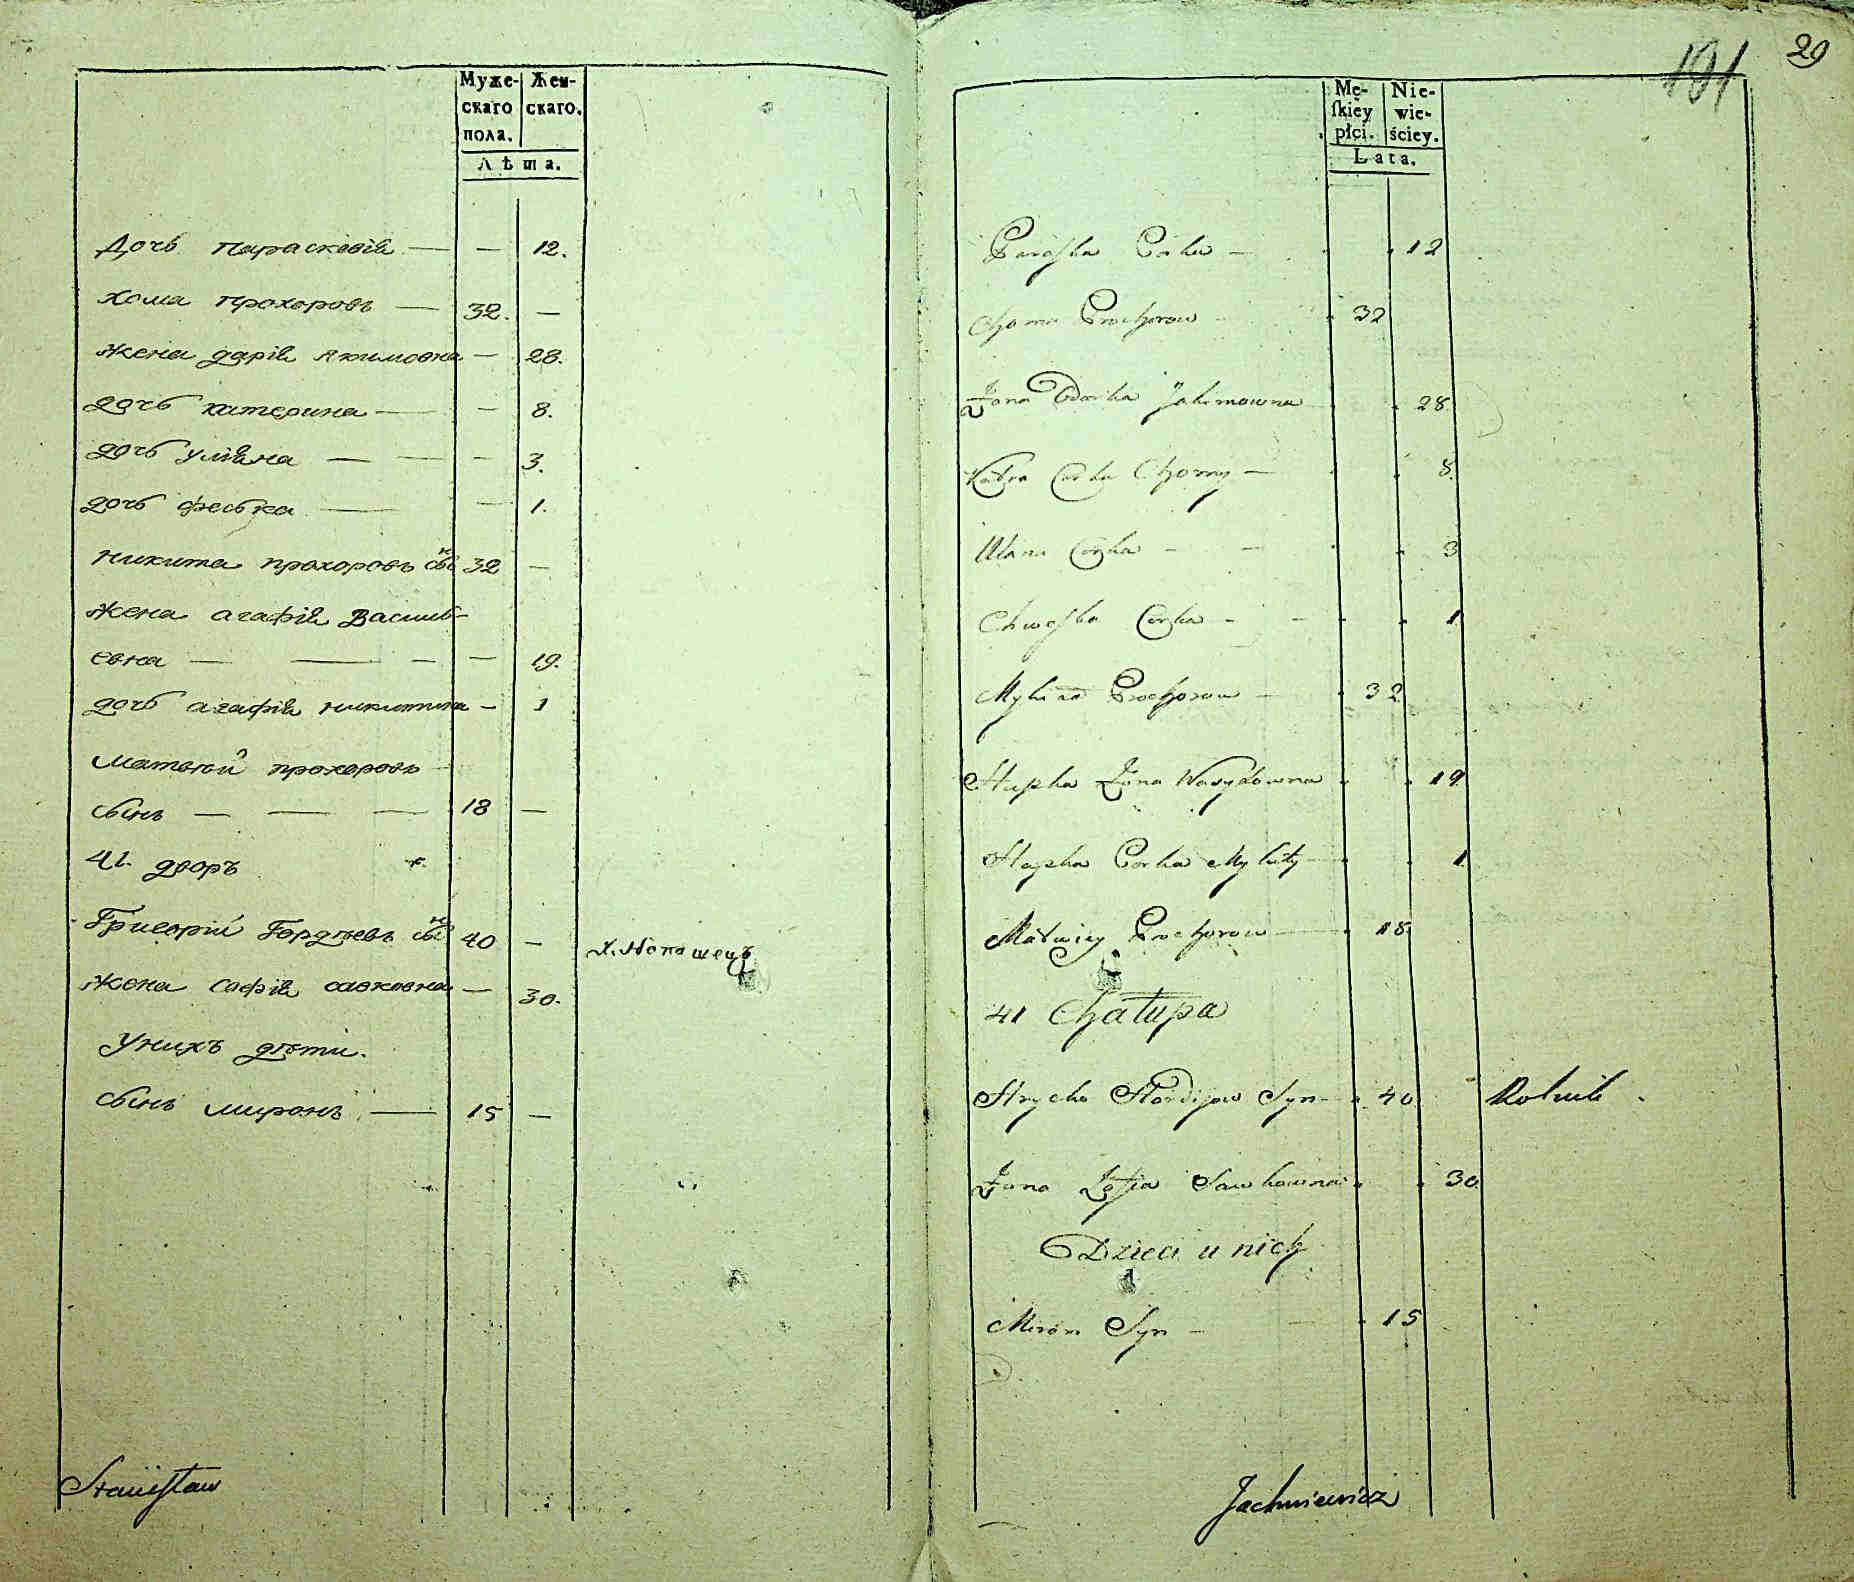 Муже-
скаго
пола.
Жен-
скаго.
Лѣта.
Дочь Параскевія — — 12.
Хома Прохоровъ — 32. —
Жена Дарія Якимовна — 28.
Дочь Катерина — — 8.
Дочь Уліяна — — — 3.
Дочь Феська — — 1.
Никита Прохоровъ сынъ 32 —
Жена Агафія Василь-
евна — — — — 19.
Дочь Агафія Никитина — 1
Матвѣй Прохоровъ
сынъ — — — 18 —
41. дворъ
Григорій Гордѣевъ сынъ 40 —
Жена Софія Савковна — 30.
У нихъ дѣти.
Сынъ Миронъ — 15 —
Stanisław
29
191
Mę-
ſkiey
płci.
Nie-
wie-
ściey.
Lata.
Paraſka Corka — 12
Choma Prochorow — 32
Żona Darka Jakimowna 28
Katra Corka Chomy — 8.
Ulana Corka — — 3
Chweſka Corka — — 1
Mykita Prochorow — 32
Hapka Żona Wasylowna 19
Hapka Corka Mykity 1
Matwiey Prochorow — 18.
41 Chałupa
Hrycko Hordijow Syn — 40 Rolnik
Żona Zofia Sawkowna 30.
Dzieci u nich
Miron Syn — — 15
Jachniewicz